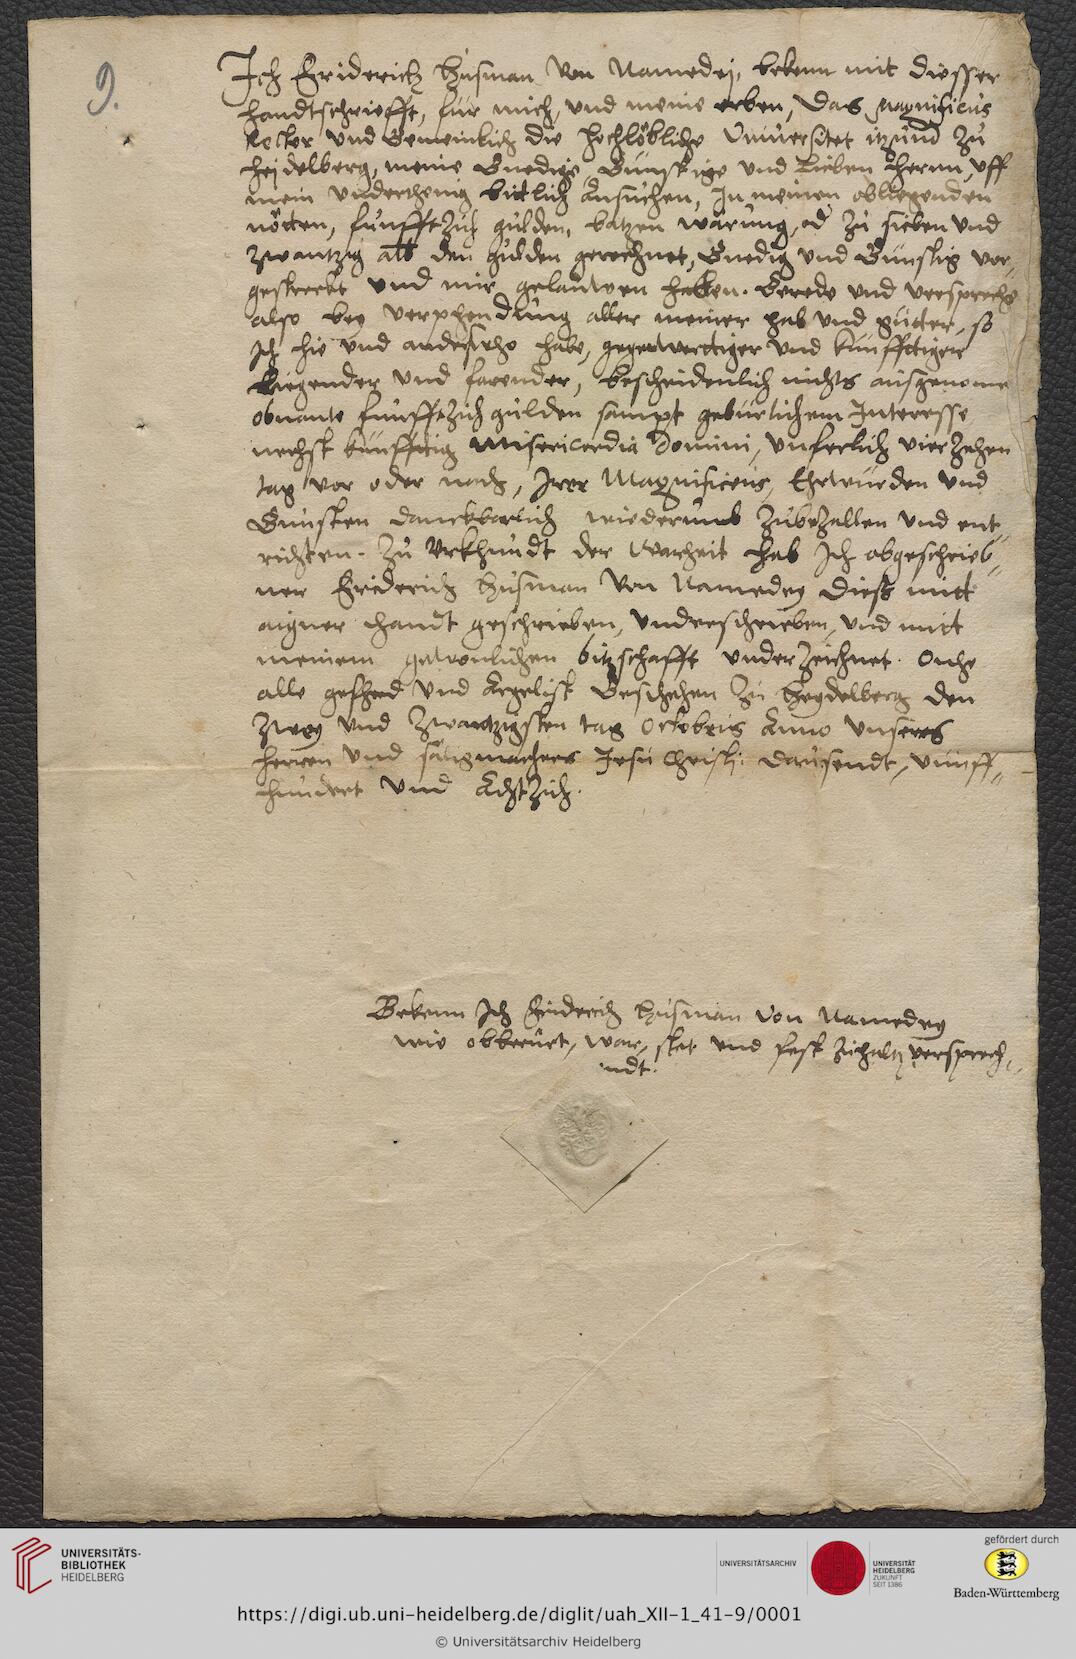 9.
Ich Friderich Husman von Namedej, bekenn mit diesser
handtschriefft, fur mich, und meine erben, Das Magnificus
Rector und Gemeinlich die hochlöbliche Universitet itzund zu
Heidelberg, meine Gnedige Gunstige und Lieben Herrn, uff
mein underthenig bittlich Ansuchen, In meinen obliegenden
nötten, funfftzich gulden, batzen wärung, zu sieben und
zwantzig alb den gulden gerechnet, Gnedig und Gunstig vor-
gestreckt und mir gelauwen haben. Gerede und verspreche
also bey verphendung aller meiner hab und gütter, so
Ich hie und anderswho habe, gegenwerttiger und kunfftiger
Liegender und farender, bescheidenlich nichts ausgenome
obnante funfftzich gulden sampt geburlichem Interesse
nechst kunfftig Misericordia Domini, unferlich vierzehen
tag vor oder nach, Irer Magnificens, Ehrwurden und
Gunsten danckbarlich wiederumb zubezallen und ent-
richten. Zu Urkhundt der Warheit hab Ich obgeschrieb-
ner Friderich Husman von Namedey dies mitt
aigner handt geschrieben, underschrieben, und mitt
meinem gewonlichen bitzschafft underzeichnet. Onhe
alle geferd und Argelist Geschehen zu Heydelberg den
zwey und zwantzigsten tag Octobris Anno unsers
herren und säligmachers Jesu Christi dausendt, vunff-
hundert und Achtzich.
Bekenn Ich Friderich Husman von Namedey
wie obberurt, war, stet und fest zuhalten versprech-
endt.
UNIVERSITÄTS-
BIBLIOTHEK
HEIDELBERG
UNIVERSITÄTSARCHIV
UNIVERSITÄT
HEIDELBERG
ZUKUNFT
SEIT 1386
gefördert durch
Baden-Württemberg
https://digi.ub.uni-heidelberg.de/diglit/uah_XII-1_41-9/0001
© Universitätsarchiv Heidelberg